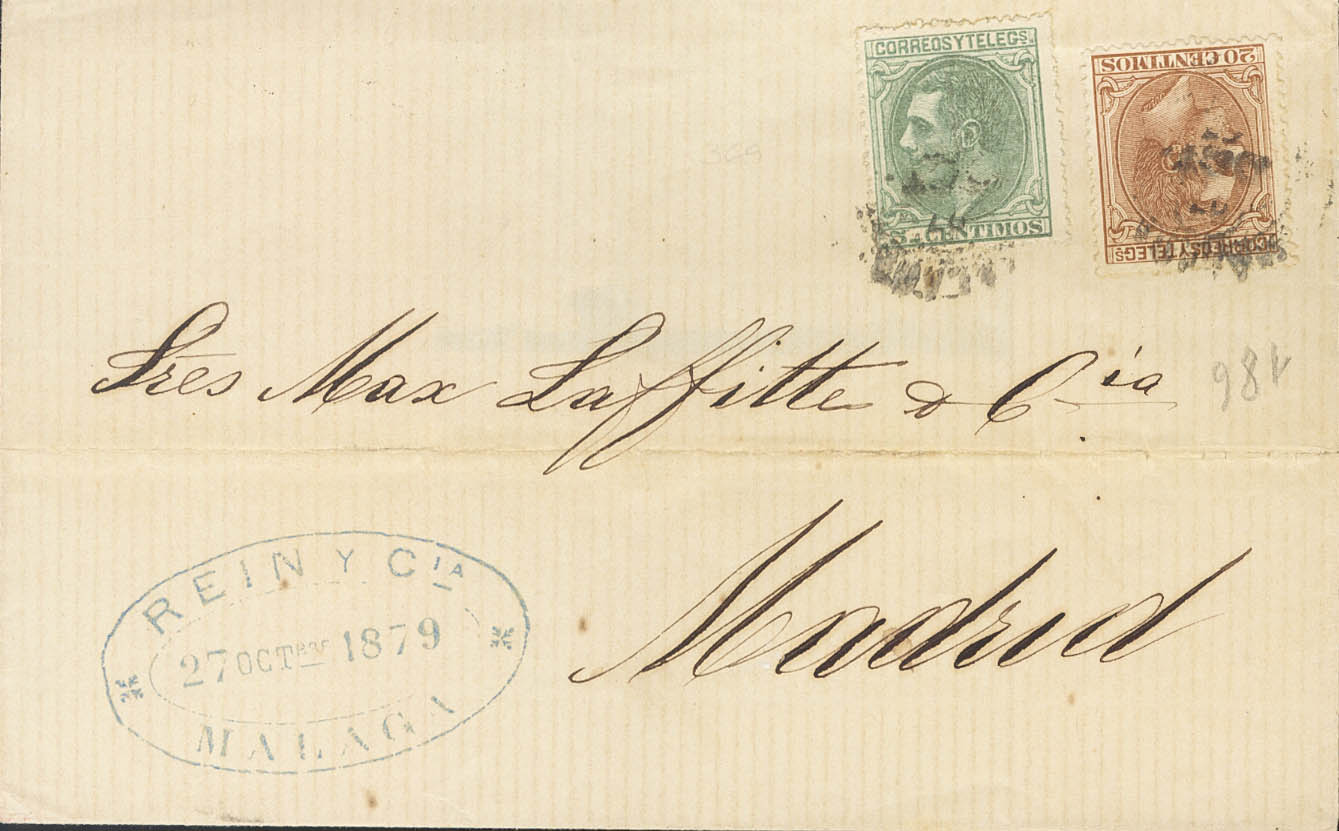 CORREOS Y TELEGS.
5 CENTIMOS
20 CENTIMOS
CORREOS Y TELEGS.
369
Sres Max Laffitte & Cía
186
Madrid
REIN Y CIA
27 OCTBRE 1879
MALAGA